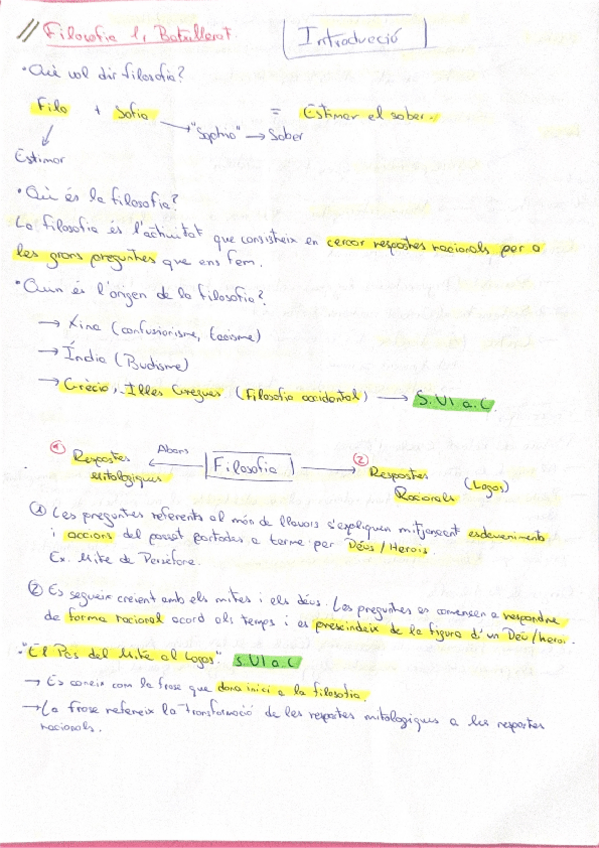 // Filosofia 1r Batxillerat. Introducció
• Què vol dir filosofia?
Filo + Sofia = Estimar el saber.
"Sophia" → Saber
Estimar
• Què és la filosofia?
La filosofia és l'activitat que consisteix en cercar respostes racionals per a
les grans preguntes que ens fem.
• Quin és l'origen de la filosofia?
→ Xina (confusionisme, taoisme)
→ Índia (Budisme)
→ Grècia, Illes Gregues (Filosofia occidental) → S.VI a.C.
① Respostes mitologiques Abans Filosofia ② Respostes Racionals (Logos)
① Les preguntes referents al món de llavors s'expliquen mitjançant esdeveniments
i accions del passat portades a terme per Déus/Herois.
Ex. Mite de Persèfone.
② Es segueix creient amb els mites i els déus. Les preguntes es comencen a respondre
de forma racional acord als temps i es prescindeix de la figura d'un Déu/heroi.
• "El Pas del Mite al Logos". S.VI a.C
→ Es coneix com la frase que dona inici a la filosofia.
→ La frase refereix la transformació de les respostes mitologiques a les respostes
racionals.